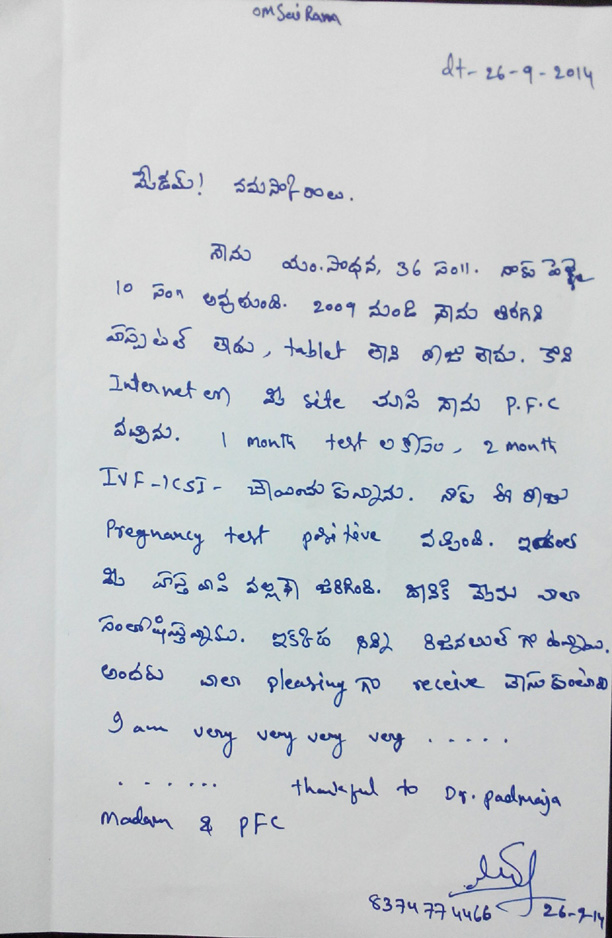 OM Sai Rama
dt- 26-9-2014
మేడమ్! నమస్కారాలు.
నేను యం. సాధన, 36 సం॥. నాకు పెళ్ళై
10 సం॥ అవుతుంది. 2009 నుండి నేను తిరగని
హాస్పిటల్ లేదు, tablet లేని రోజు లేదు. కాని
Internet లో మీ site చూసి నేను P.F.C
వచ్చాను. 1 month test ల కోసం, 2 month
IVF-ICSI- చేయించుకున్నాను. నాకు ఈ రోజు
Pregnancy test positive వచ్చింది. ఇదంతా
మీ హస్తవాసి వల్లనే జరిగింది. దానికి మేము చాలా
సంతోషిస్తున్నాము. ఇక్కడ గా ఉన్నాయి.
అందరు చాలా pleasing గా receive చేసుకుంటారు
I am very very very very .....
....... thankful to Dr. Padmaja
Madam & PFC
8374774466 26-9-14